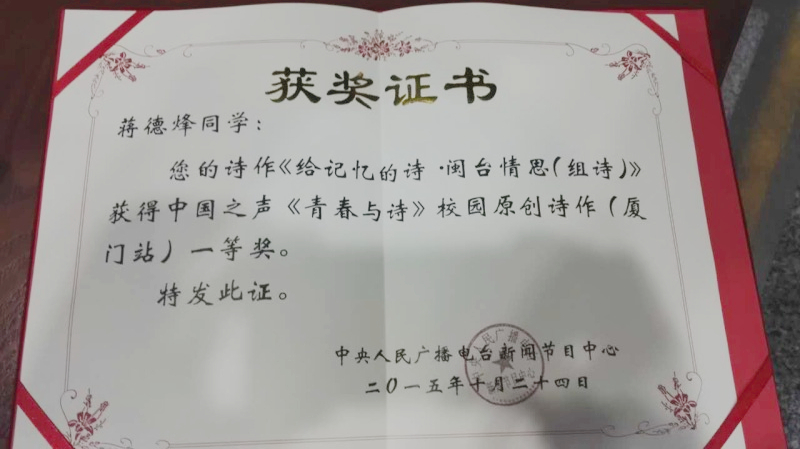 获奖证书
蒋德烽同学：
您的诗作《给记忆的诗·闽台情思（组诗）》
获得中国之声《青春与诗》校园原创诗作（厦
门站）一等奖。
特发此证。
中央人民广播电台新闻节目中心
二〇一五年十月二十四日